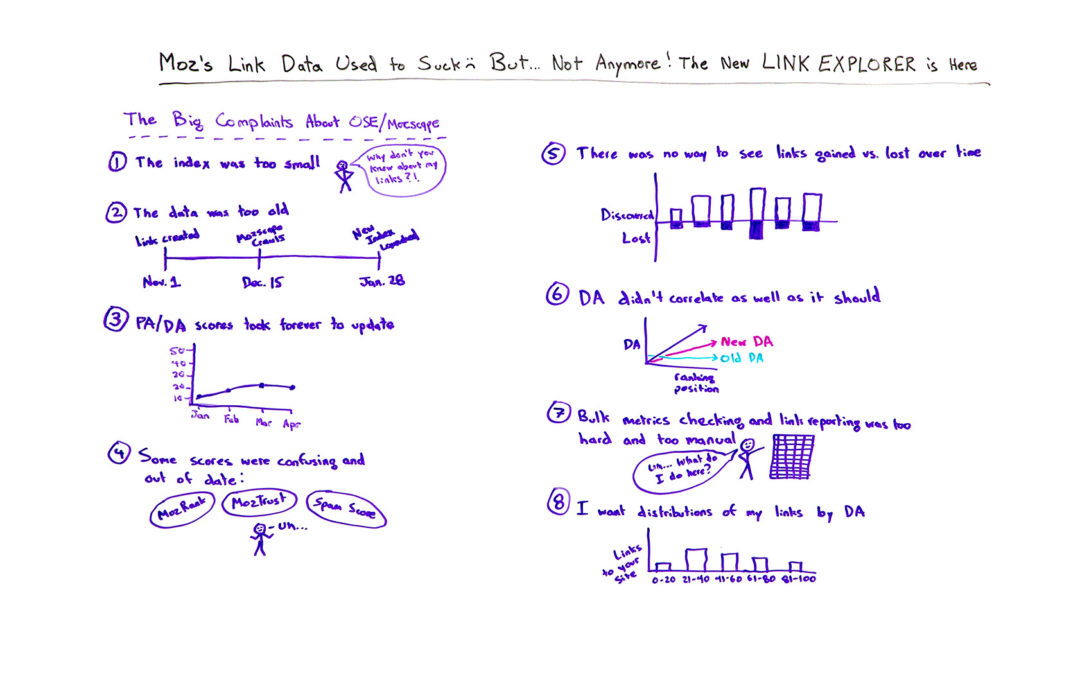 Moz's Link Data Used to Suck But... Not Anymore! The New LINK EXPLORER is Here
The Big Complaints About OSE/Mozscape
① The index was too small
Why don't you
know about my
links?!
② The data was too old
Link created
Mozscape
Crawls
New
Index
Launched
Nov. 1
Dec. 15
Jan. 28
③ PA/DA scores took forever to update
50
40
20
10
Jan
Feb
Mar
Apr
④ Some scores were confusing and
out of date:
MozRank
MozTrust
Spam Score
- Uh...
⑤ There was no way to see links gained vs. lost over time
Discovered
Lost
⑥ DA didn't correlate as well as it should
DA
New DA
Old DA
ranking
position
⑦ Bulk metrics checking and link reporting was too
hard and too manual
Um... What do
I do here?
⑧ I want distributions of my links by DA
Links
to your
site
0-20
21-40
41-60
61-80
81-100